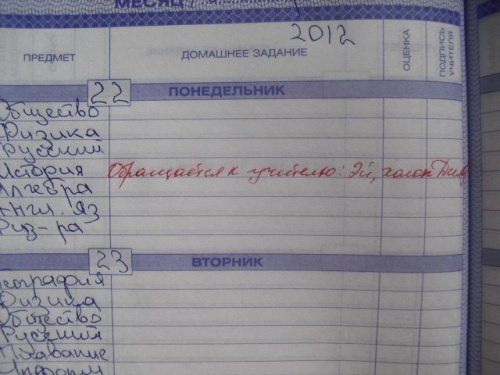 МЕСЯЦ
2012
ПРЕДМЕТ
ДОМАШНЕЕ ЗАДАНИЕ
ОЦЕНКА
ПОДПИСЬ УЧИТЕЛЯ
22 ПОНЕДЕЛЬНИК
Общество
Физика
Русский
История Обращается к учителю: Эй, холоп
Алгебра
Англ. яз
Физ-ра
23 ВТОРНИК
География
Физика
Общество
Русский
Плавание
Информ